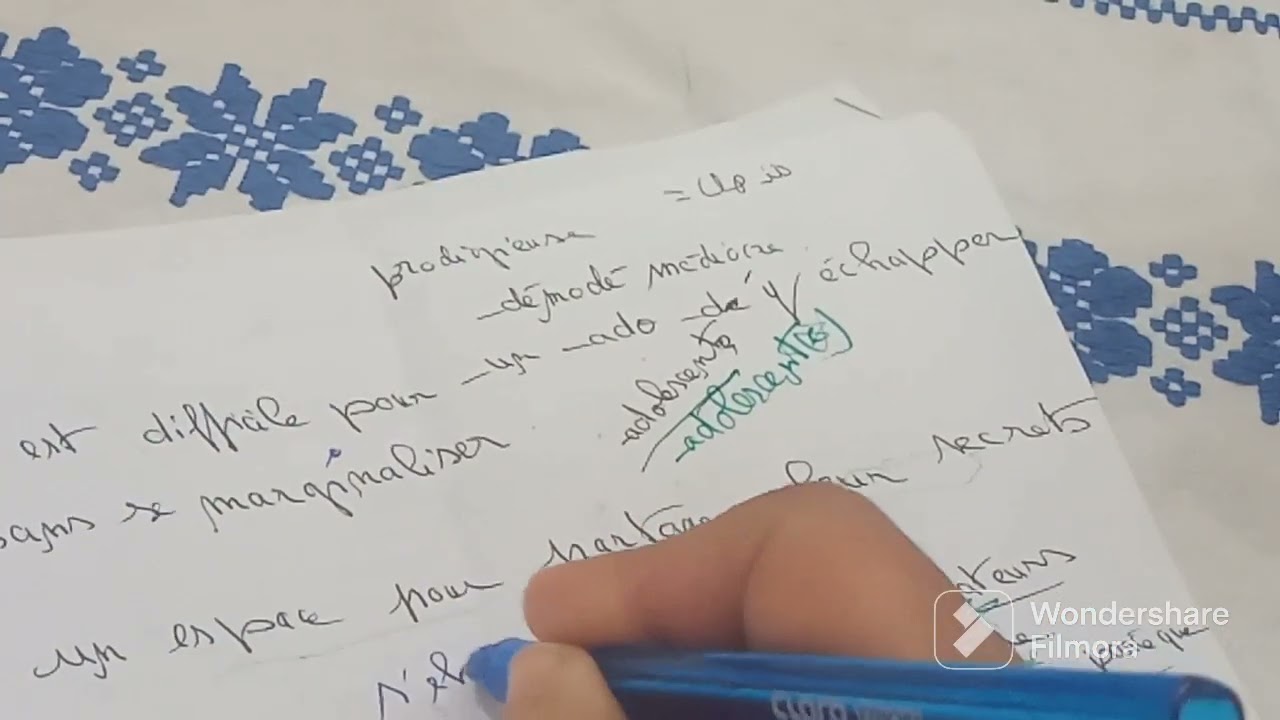 prodigieuse
démodé médiocre
est difficile pour un ado de y échapper
adolescente
adolescent(e)
sans se marginaliser
un espace pour leur secrets
Wondershare
Filmora